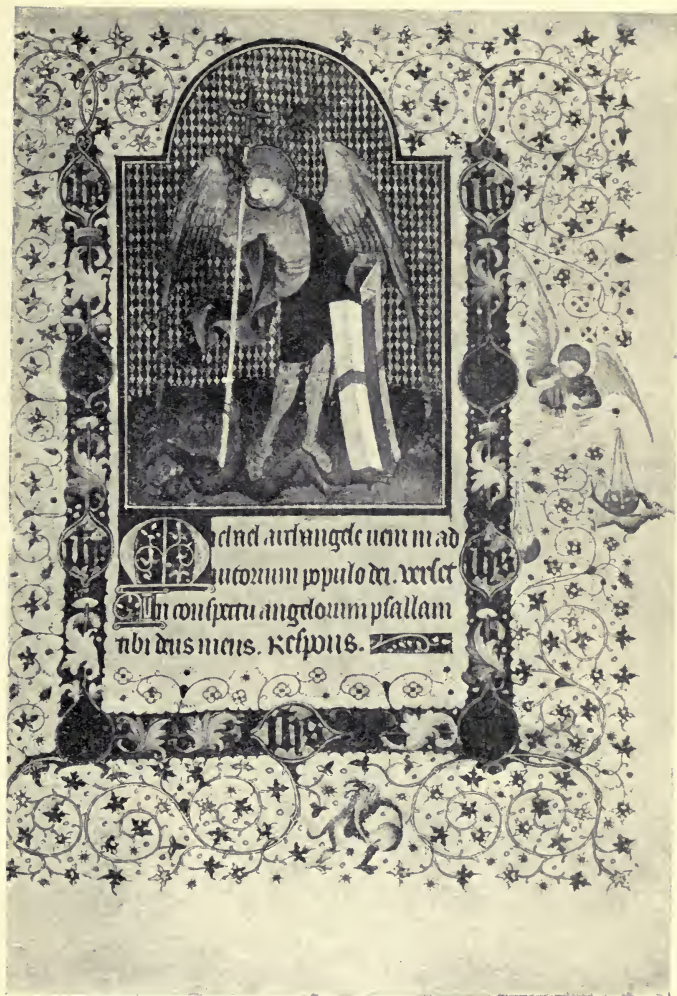 ihs ihs
Michael archangele veni in ad
iutorium populo dei. verset
In conspectu angelorum psallam
tibi deus meus. Respons.
ihs ihs
ihs